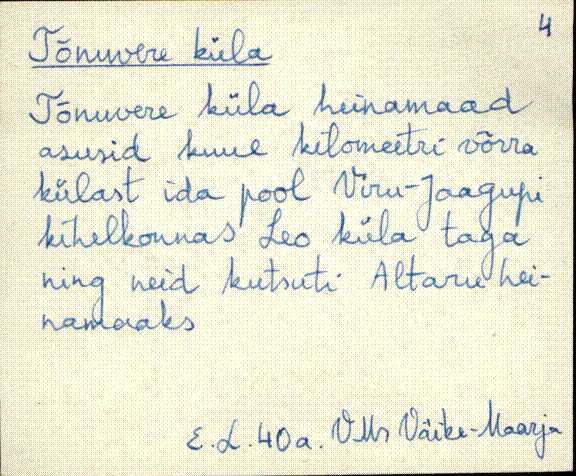 4
Tõnuvere küla
Tõnuvere küla heinamaad
asusid kuue kilomeetri võrra
külast ida pool Viru-Jaagupi
kihelkonnas Leo küla taga
ning neid kutsuti Altaru hei-
namaaks
E. L. 40a. VMr Väike-Maarja